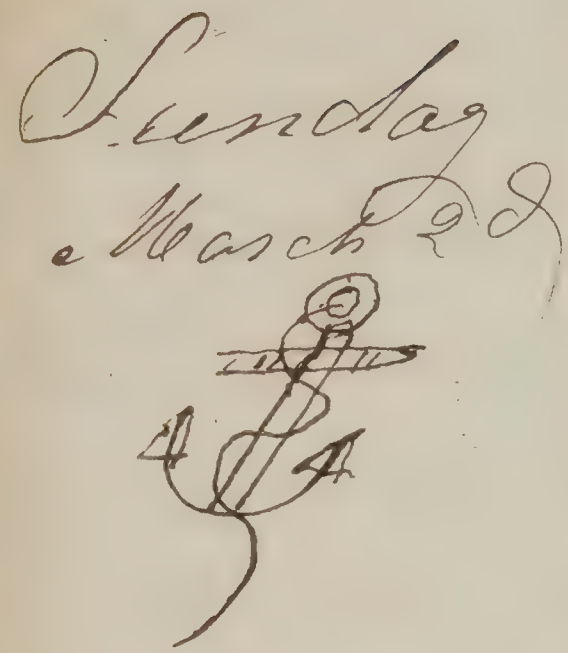 Sunday
March 2d